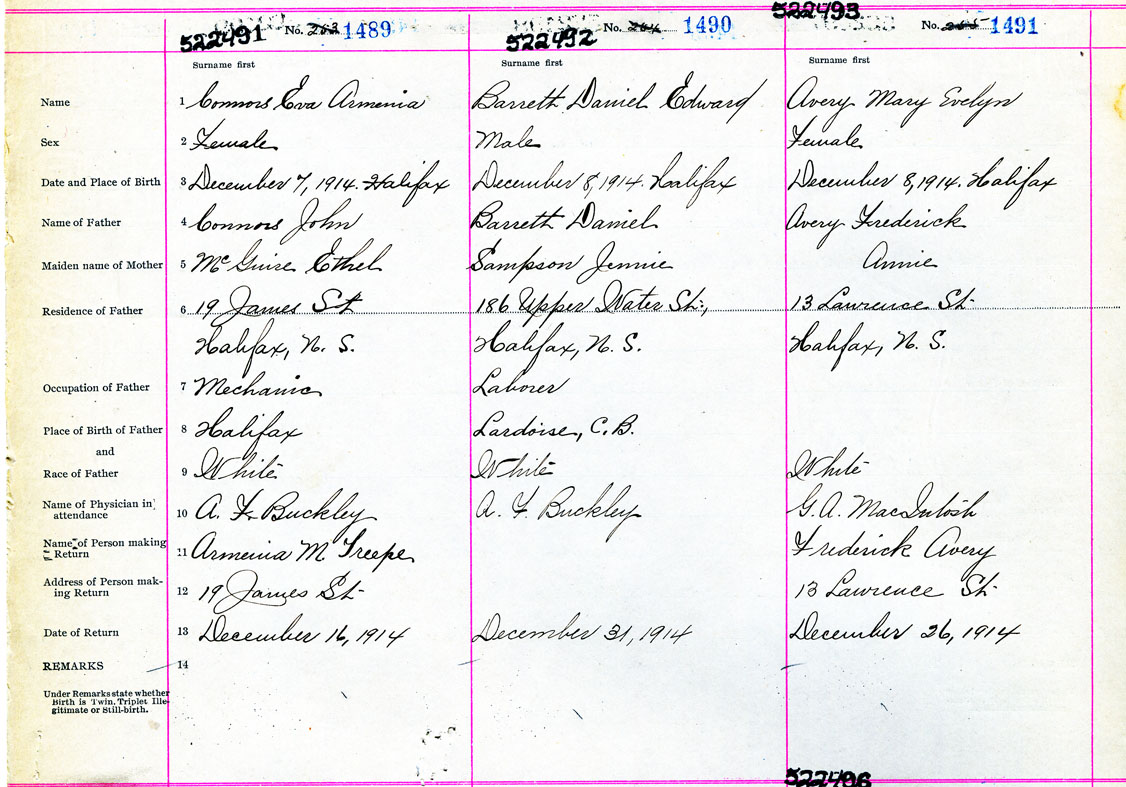 522491 No. 263 1489 522492 No. 264 1490 522493 No. 265 1491
Surname first Surname first Surname first
Name 1 Connors Eva Armenia Barrett Daniel Edward Avery Mary Evelyn
Sex 2 Female Male Female
Date and Place of Birth 3 December 7, 1914. Halifax December 8, 1914. Halifax December 8, 1914. Halifax
Name of Father 4 Connors John Barrett Daniel Avery Frederick
Maiden name of Mother 5 McGuire Ethel Sampson Jennie Annie
Residence of Father 6 19 James St 186 Upper Water St., 13 Lawrence St.
Halifax, N. S. Halifax, N. S. Halifax, N. S.
Occupation of Father 7 Mechanic Laborer
Place of Birth of Father 8 Halifax Lardoise, C.B.
and
Race of Father 9 White White White
Name of Physician in attendance 10 A. F. Buckley A. F. Buckley G. A. MacIntosh
Name of Person making Return 11 Armenia M. Freepe Frederick Avery
Address of Person mak-
ing Return 12 19 James St. 13 Lawrence St.
Date of Return 13 December 16, 1914 December 31, 1914 December 26, 1914
REMARKS 14
Under Remarks state whether
Birth is Twin, Triplet Ille-
gitimate or Still-birth.
522496